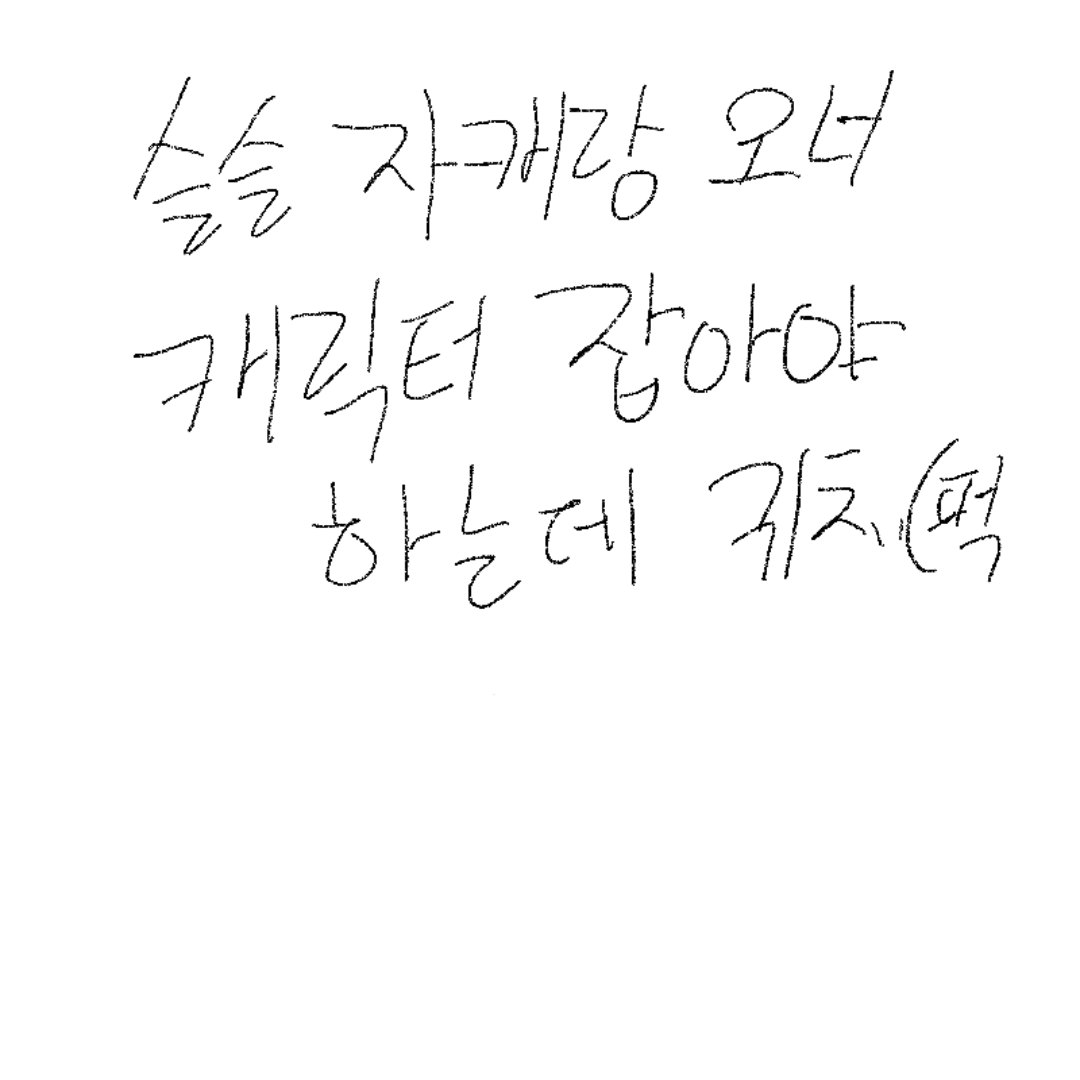 슬슬 자캐랑 오너
캐릭터 잡아야
하는데 귀찮..(퍽